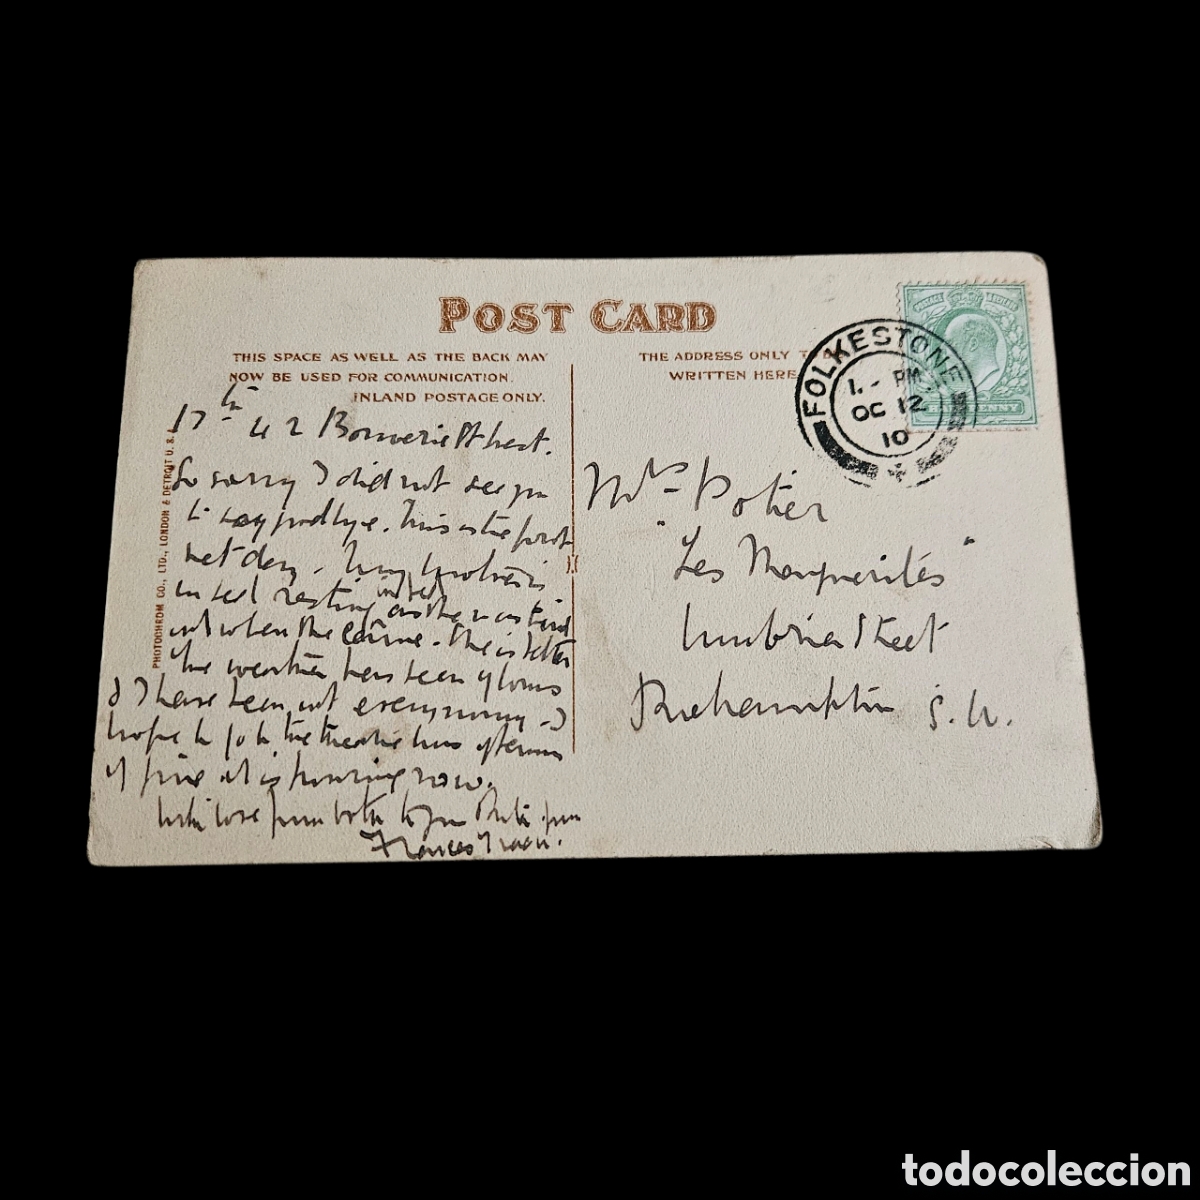 POST CARD
THIS SPACE AS WELL AS THE BACK MAY
NOW BE USED FOR COMMUNICATION.
INLAND POSTAGE ONLY.
THE ADDRESS ONLY TO
WRITTEN HERE
FOLKESTONE
1. - PM
OC 12
10
POSTAGE
PENNY
PHOTOCHROM CO., LTD., LONDON & DETROIT U.S.A.
42 Bouverie Street.
So sorry I did not see you
to say goodbye. This is the first
wet day. My
in bed resting as she was tired
out when she came. She is better
The weather has been glorious
& I have been out every morning - I
hope to go to the theatre this afternoon
if fine it is pouring now.
With love from both to you
Frances
Mrs Potier
"Les Marguerites"
Umbria Street
Roehampton S.W.
todocoleccion